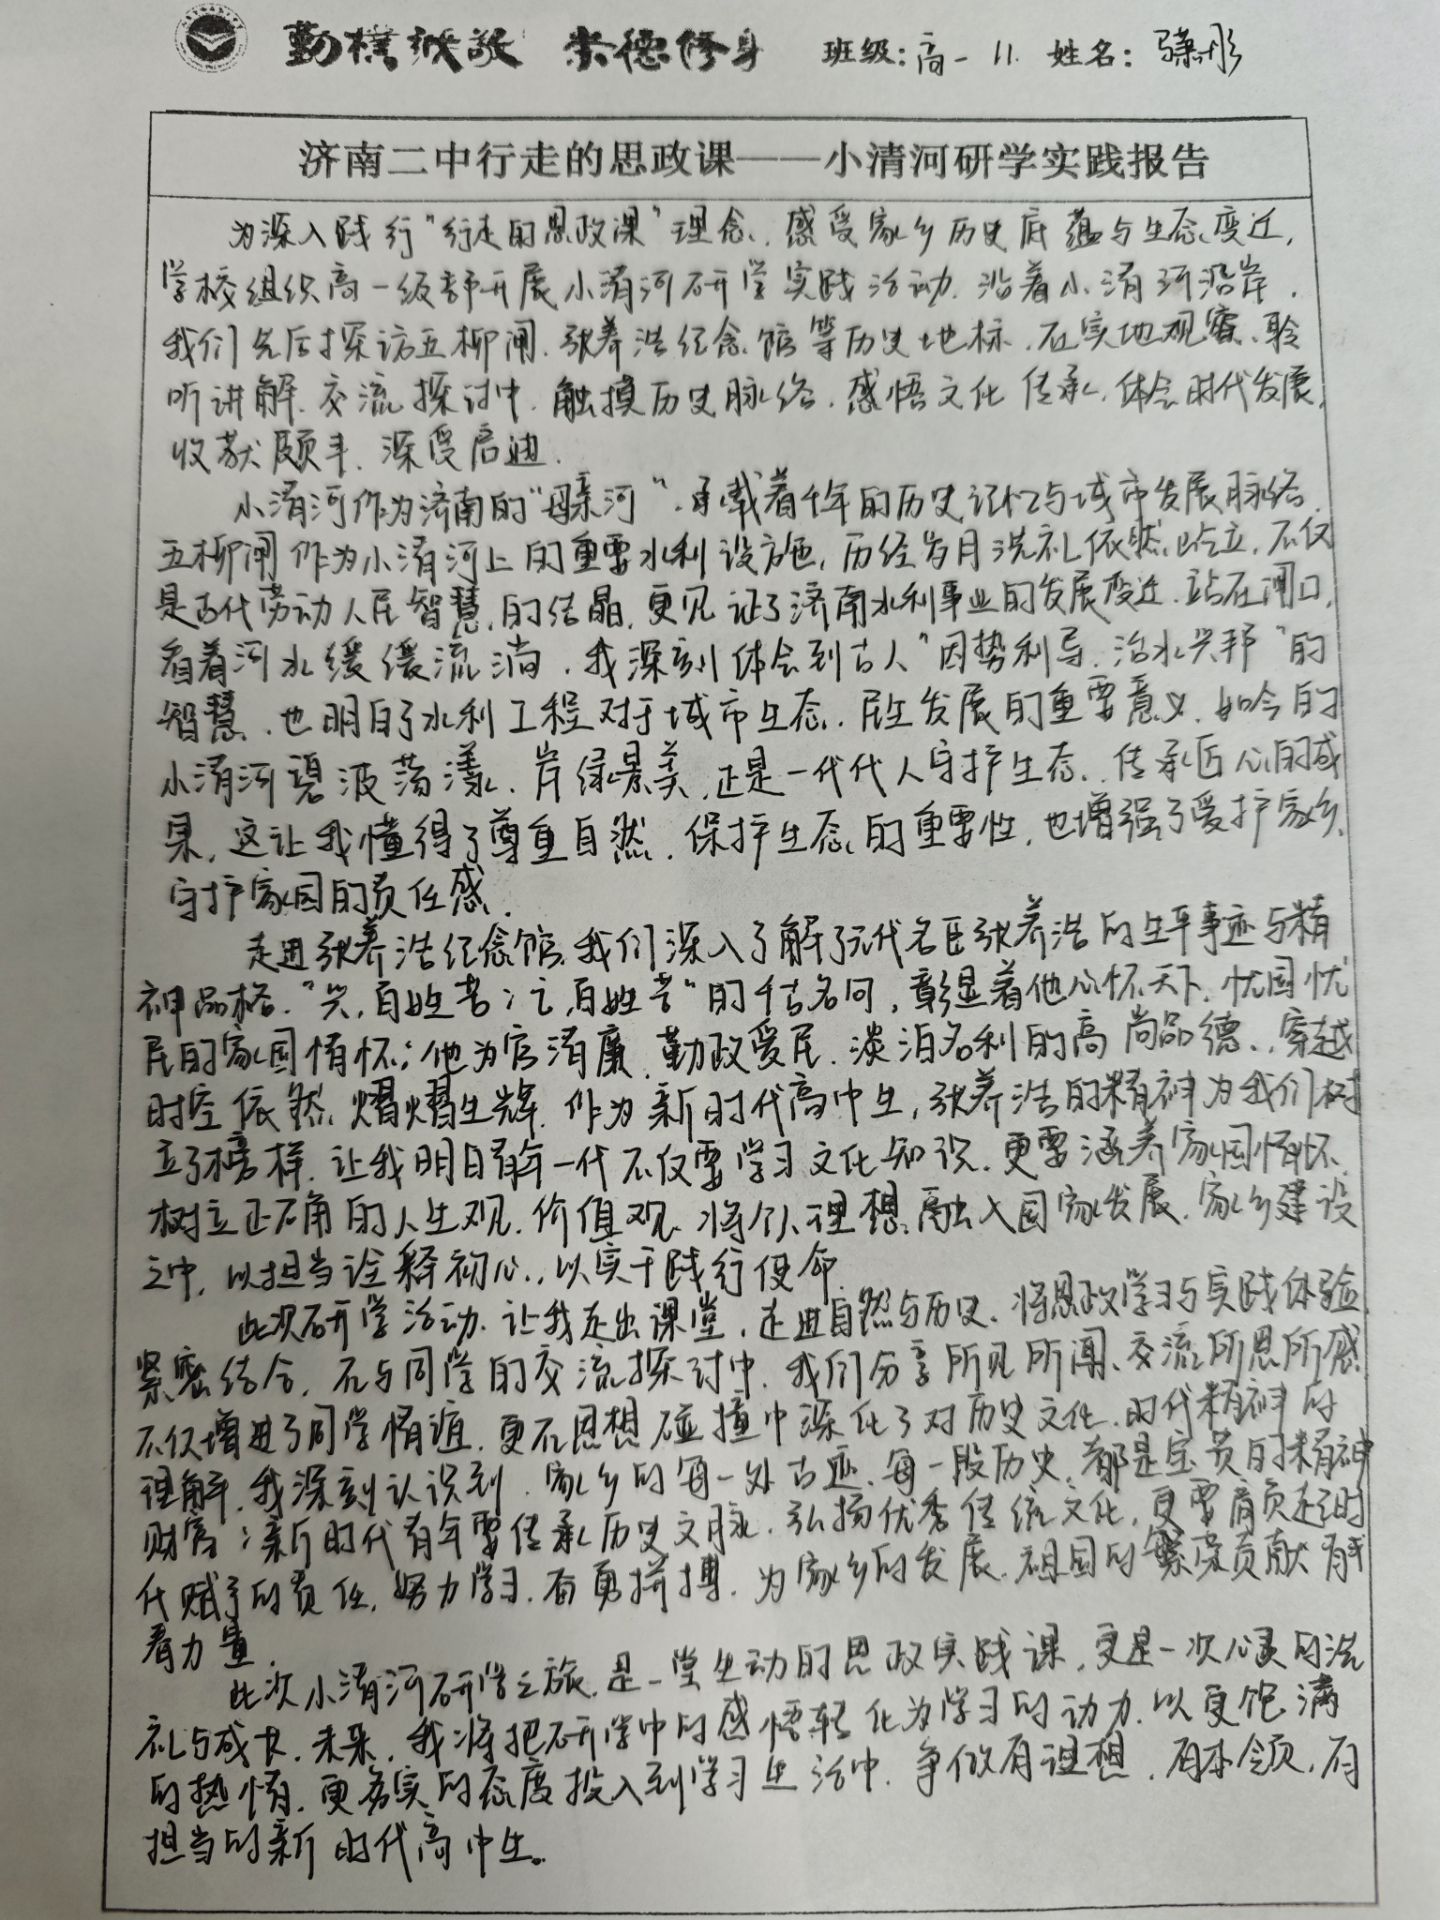 勤朴诚敬 崇德修身 班级：高一 11. 姓名：
济南二中行走的思政课——小清河研学实践报告
为深入践行“行走的思政课”理念、感受家乡历史底蕴与生态变迁,
学校组织高一级部开展小清河研学实践活动. 沿着小清河沿岸.
我们先后探访五柳闸、张养浩纪念馆等历史地标. 在实地观察、聆
听讲解、交流探讨中. 触摸历史脉络. 感悟文化传承. 体会时代发展,
收获颇丰. 深受启迪.
小清河作为济南的“母亲河”. 承载着千年的历史记忆与城市发展脉络.
五柳闸作为小清河上的重要水利设施, 历经岁月洗礼依然屹立. 不仅
是古代劳动人民智慧的结晶. 更见证了济南水利事业的发展变迁. 站在闸口,
看着河水缓缓流淌. 我深刻体会到古人“因势利导、治水兴邦”的
智慧. 也明白了水利工程对于城市生态. 民生发展的重要意义. 如今的
小清河碧波荡漾. 岸绿景美. 正是一代代人守护生态. 传承匠心的成
果, 这让我懂得了尊重自然. 保护生态的重要性, 也增强了爱护家乡、
守护家园的责任感.
走进张养浩纪念馆. 我们深入了解了元代名臣张养浩的生平事迹与精
神品格. “兴, 百姓苦；亡, 百姓苦”的千古名句, 彰显着他心怀天下. 忧国忧
民的家国情怀；他为官清廉. 勤政爱民. 淡泊名利的高尚品德., 穿越
时空依然熠熠生辉. 作为新时代高中生, 张养浩的精神为我们树
立了榜样. 让我明白青年一代不仅要学习文化知识. 更要涵养家国情怀.
树立正确的人生观. 价值观. 将个人理想融入国家发展. 家乡建设
之中, 以担当诠释初心., 以实干践行使命.
此次研学活动. 让我走出课堂, 走进自然与历史. 将思政学习与实践体验
紧密结合, 在与同学的交流探讨中. 我们分享所见所闻、交流所思所感
不仅增进了同学情谊. 更在思想碰撞中深化了对历史文化. 时代精神的
理解. 我深刻认识到. 家乡的每一处古迹、每一段历史. 都是宝贵的精神
财富；新时代青年要传承历史文脉. 弘扬优秀传统文化, 更要肩负起时
代赋予的责任, 努力学习. 奋勇拼搏. 为家乡的发展. 祖国的繁荣贡献青
春力量.
此次小清河研学之旅. 是一堂生动的思政实践课, 更是一次心灵的洗
礼与成长. 未来. 我将把研学中的感悟转化为学习的动力. 以更饱满
的热情. 更务实的态度投入到学习生活中. 争做有理想. 有本领, 有
担当的新时代高中生。